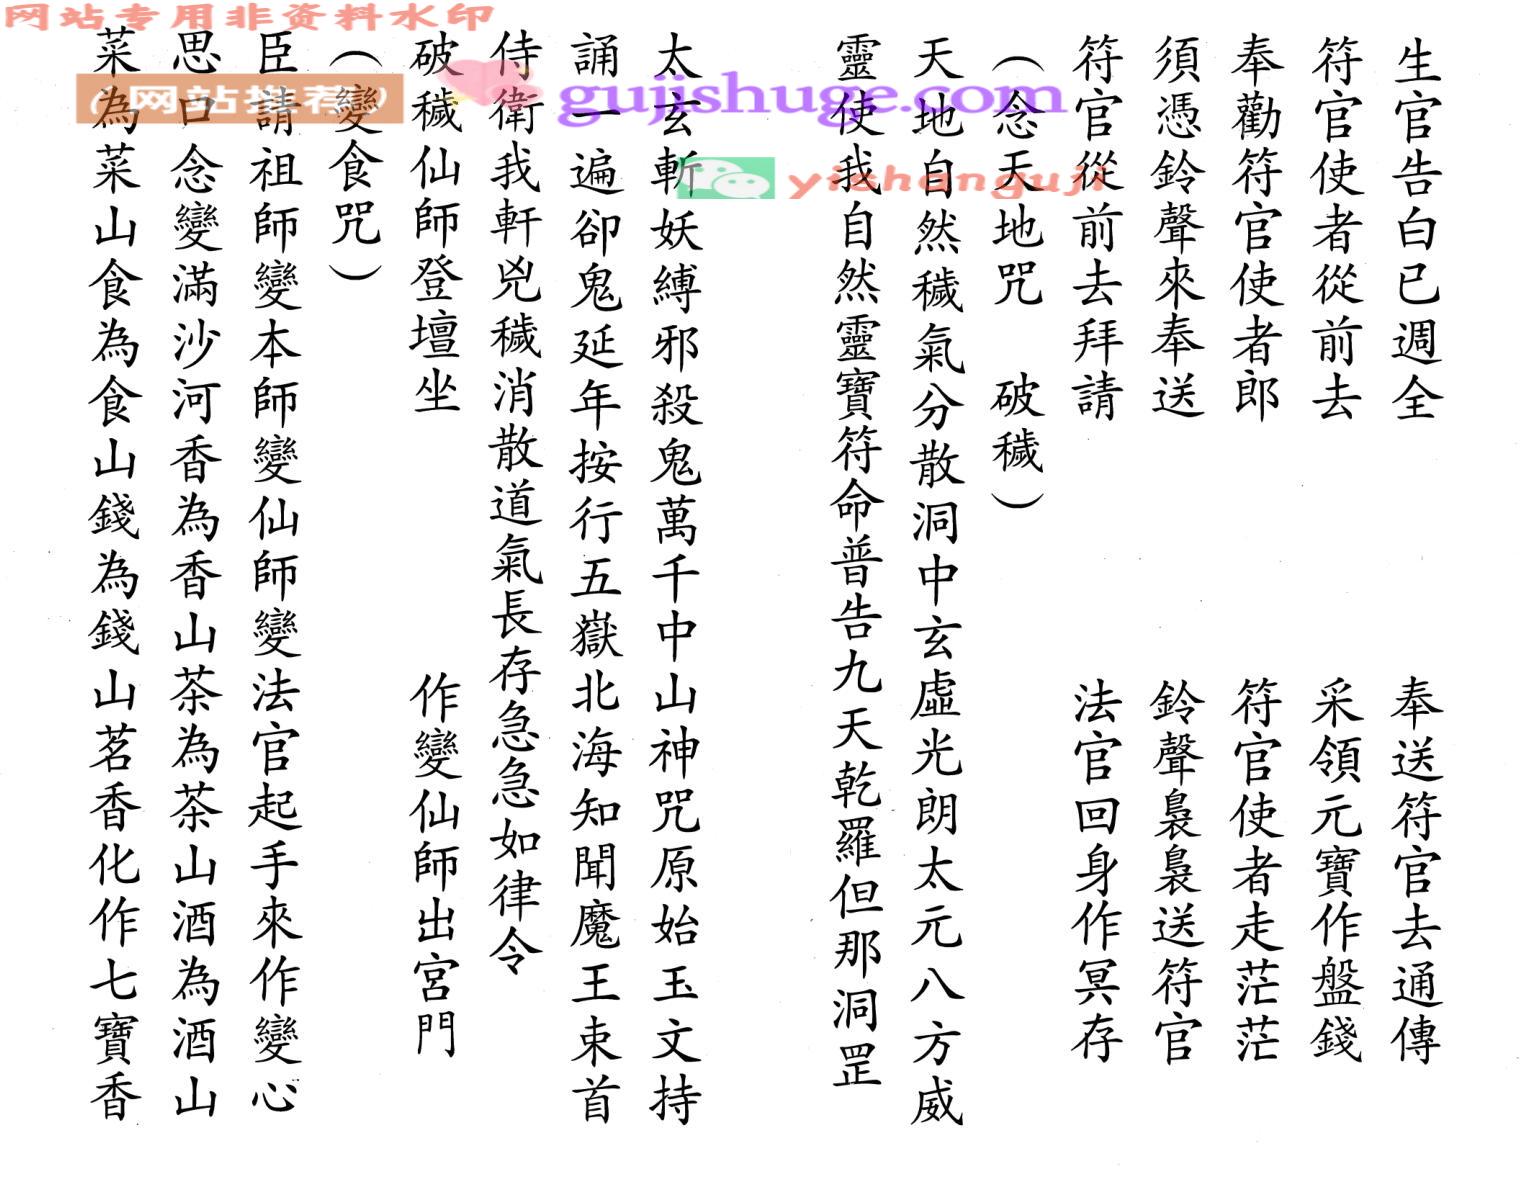 网站专用非资料水印
(网站推荐)
gujishuge.com
yishanguji
生官告白已週全　奉送符官去通傳
符官使者從前去　采領元寶作盤錢
奉勸符官使者郎　符官使者走茫茫
須憑鈴聲來奉送　鈴聲裊裊送符官
符官從前去拜請　法官回身作冥存
（念天地咒　破穢）
天地自然穢氣分散洞中玄虛光朗太元八方威
靈使我自然靈寶符命普告九天乾羅但那洞罡
太玄斬妖縛邪殺鬼萬千中山神咒原始玉文持
誦一遍卻鬼延年按行五嶽北海知聞魔王束首
侍衛我軒兇穢消散道氣長存急急如律令
破穢仙師登壇坐　作變仙師出宮門
（變食咒）
臣請祖師變本師變仙師變法官起手來作變心
思口念變滿沙河香為香山茶為茶山酒為酒山
菜為菜山食為食山錢為錢山茗香化作七寶香